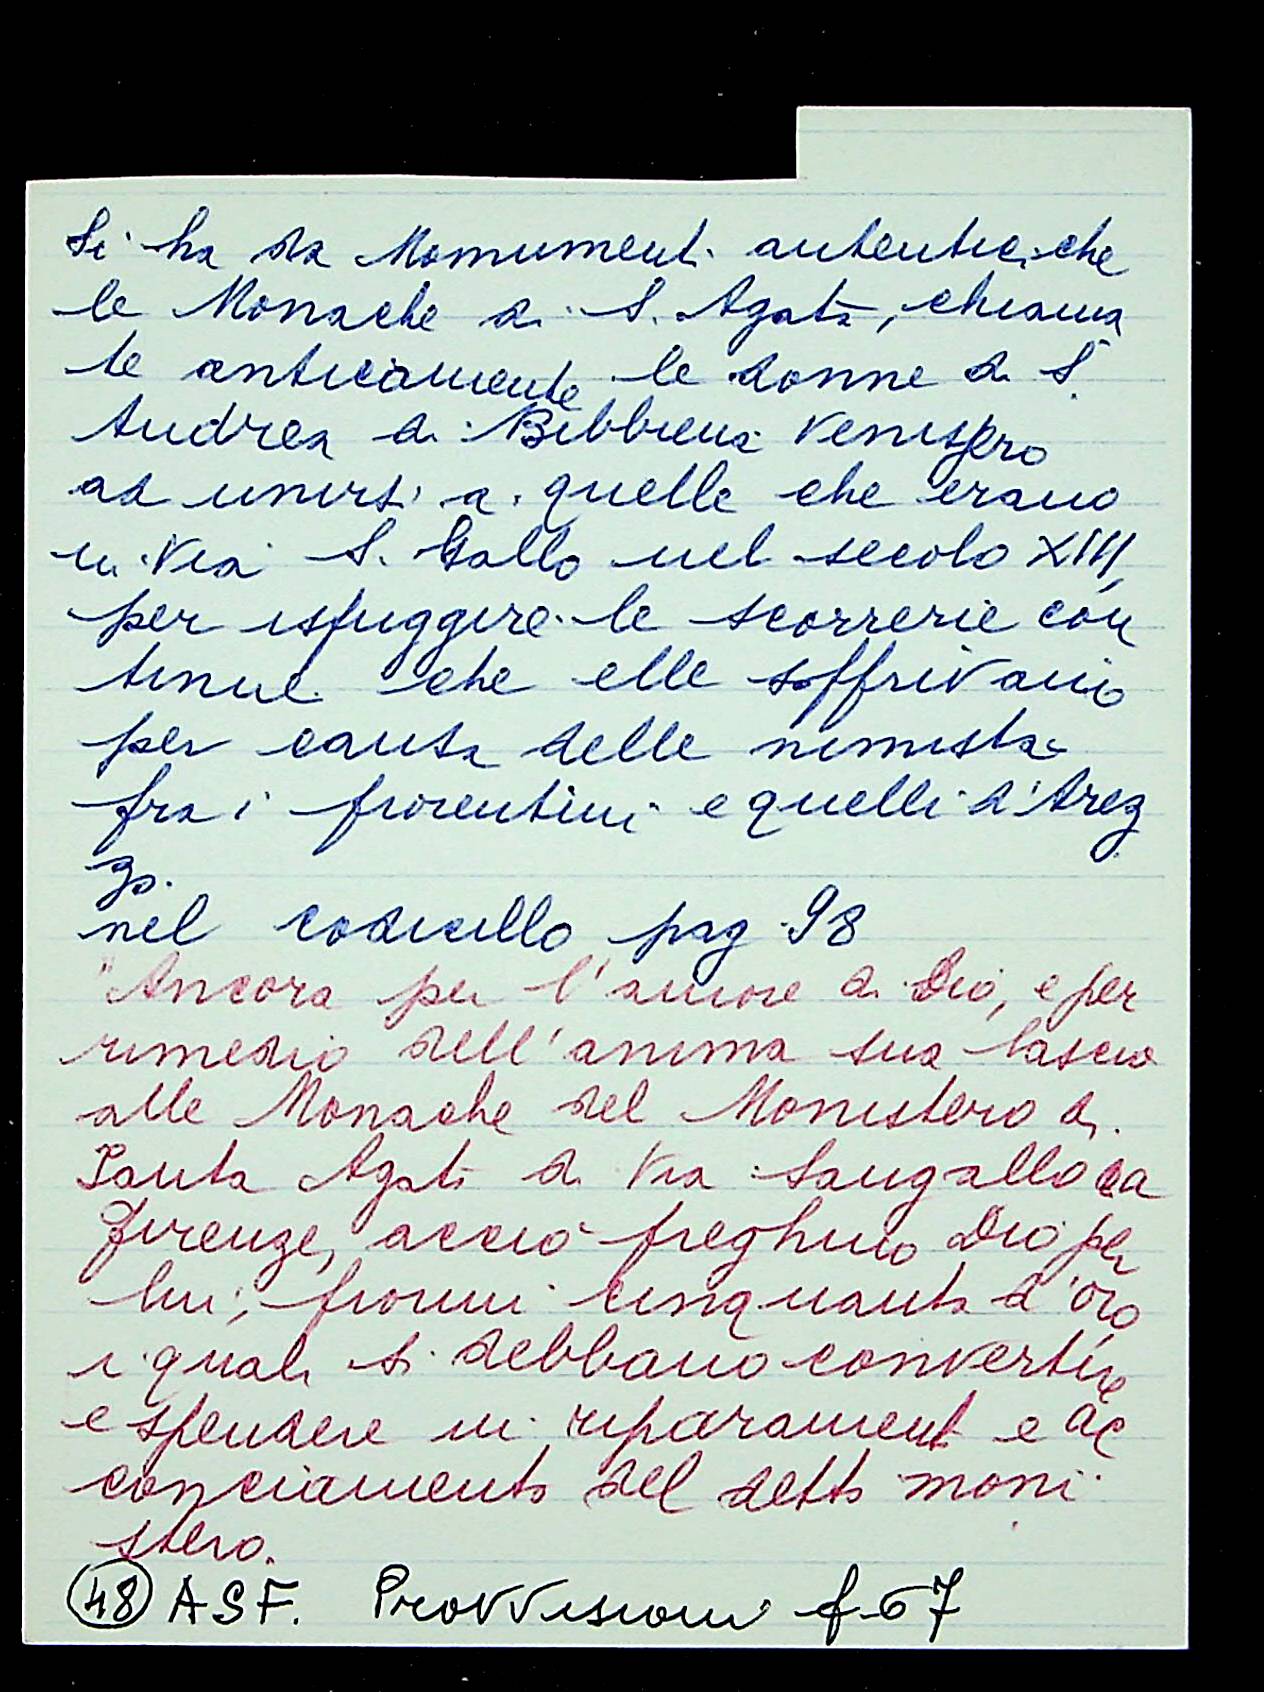 Si ha da Monumenti autentici che
le Monache di S. Agata, chiama
te anticamente le donne di S.
Andrea di Bibbiena vennero
ad unirsi a quelle che erano
in Via S. Gallo nel secolo XIII,
per isfuggire le scorrerie con
tinue che elle soffrivano
per causa delle nimista
fra i fiorentini e quelli d'Arez
zo.
nel codicillo pag 98
"Ancora per l'amore di Dio, e per
rimedio dell'anima sua lascio
alle Monache del Monistero di
Santa Agata di Via Sangallo da
Firenze, acciò preghino Dio per
lui, fiorini cinquanta d'oro,
i quali si debbano convertire
e spendere in riparamenti e ac
conciamento del detto moni
stero.
(48) A S F. Provvisioni f. 67